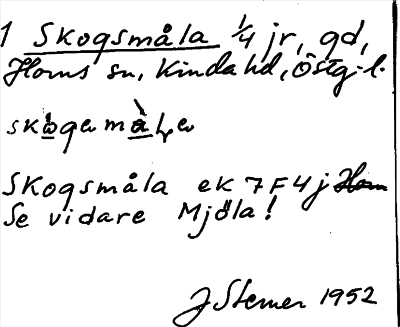 1 Skogsmåla 1/4 jr, gd,
Horns sn, Kinda hd, Östg. l.
Skogsmåla ek 7 F 4 j
Se vidare Mjöla!
J Sterner 1952